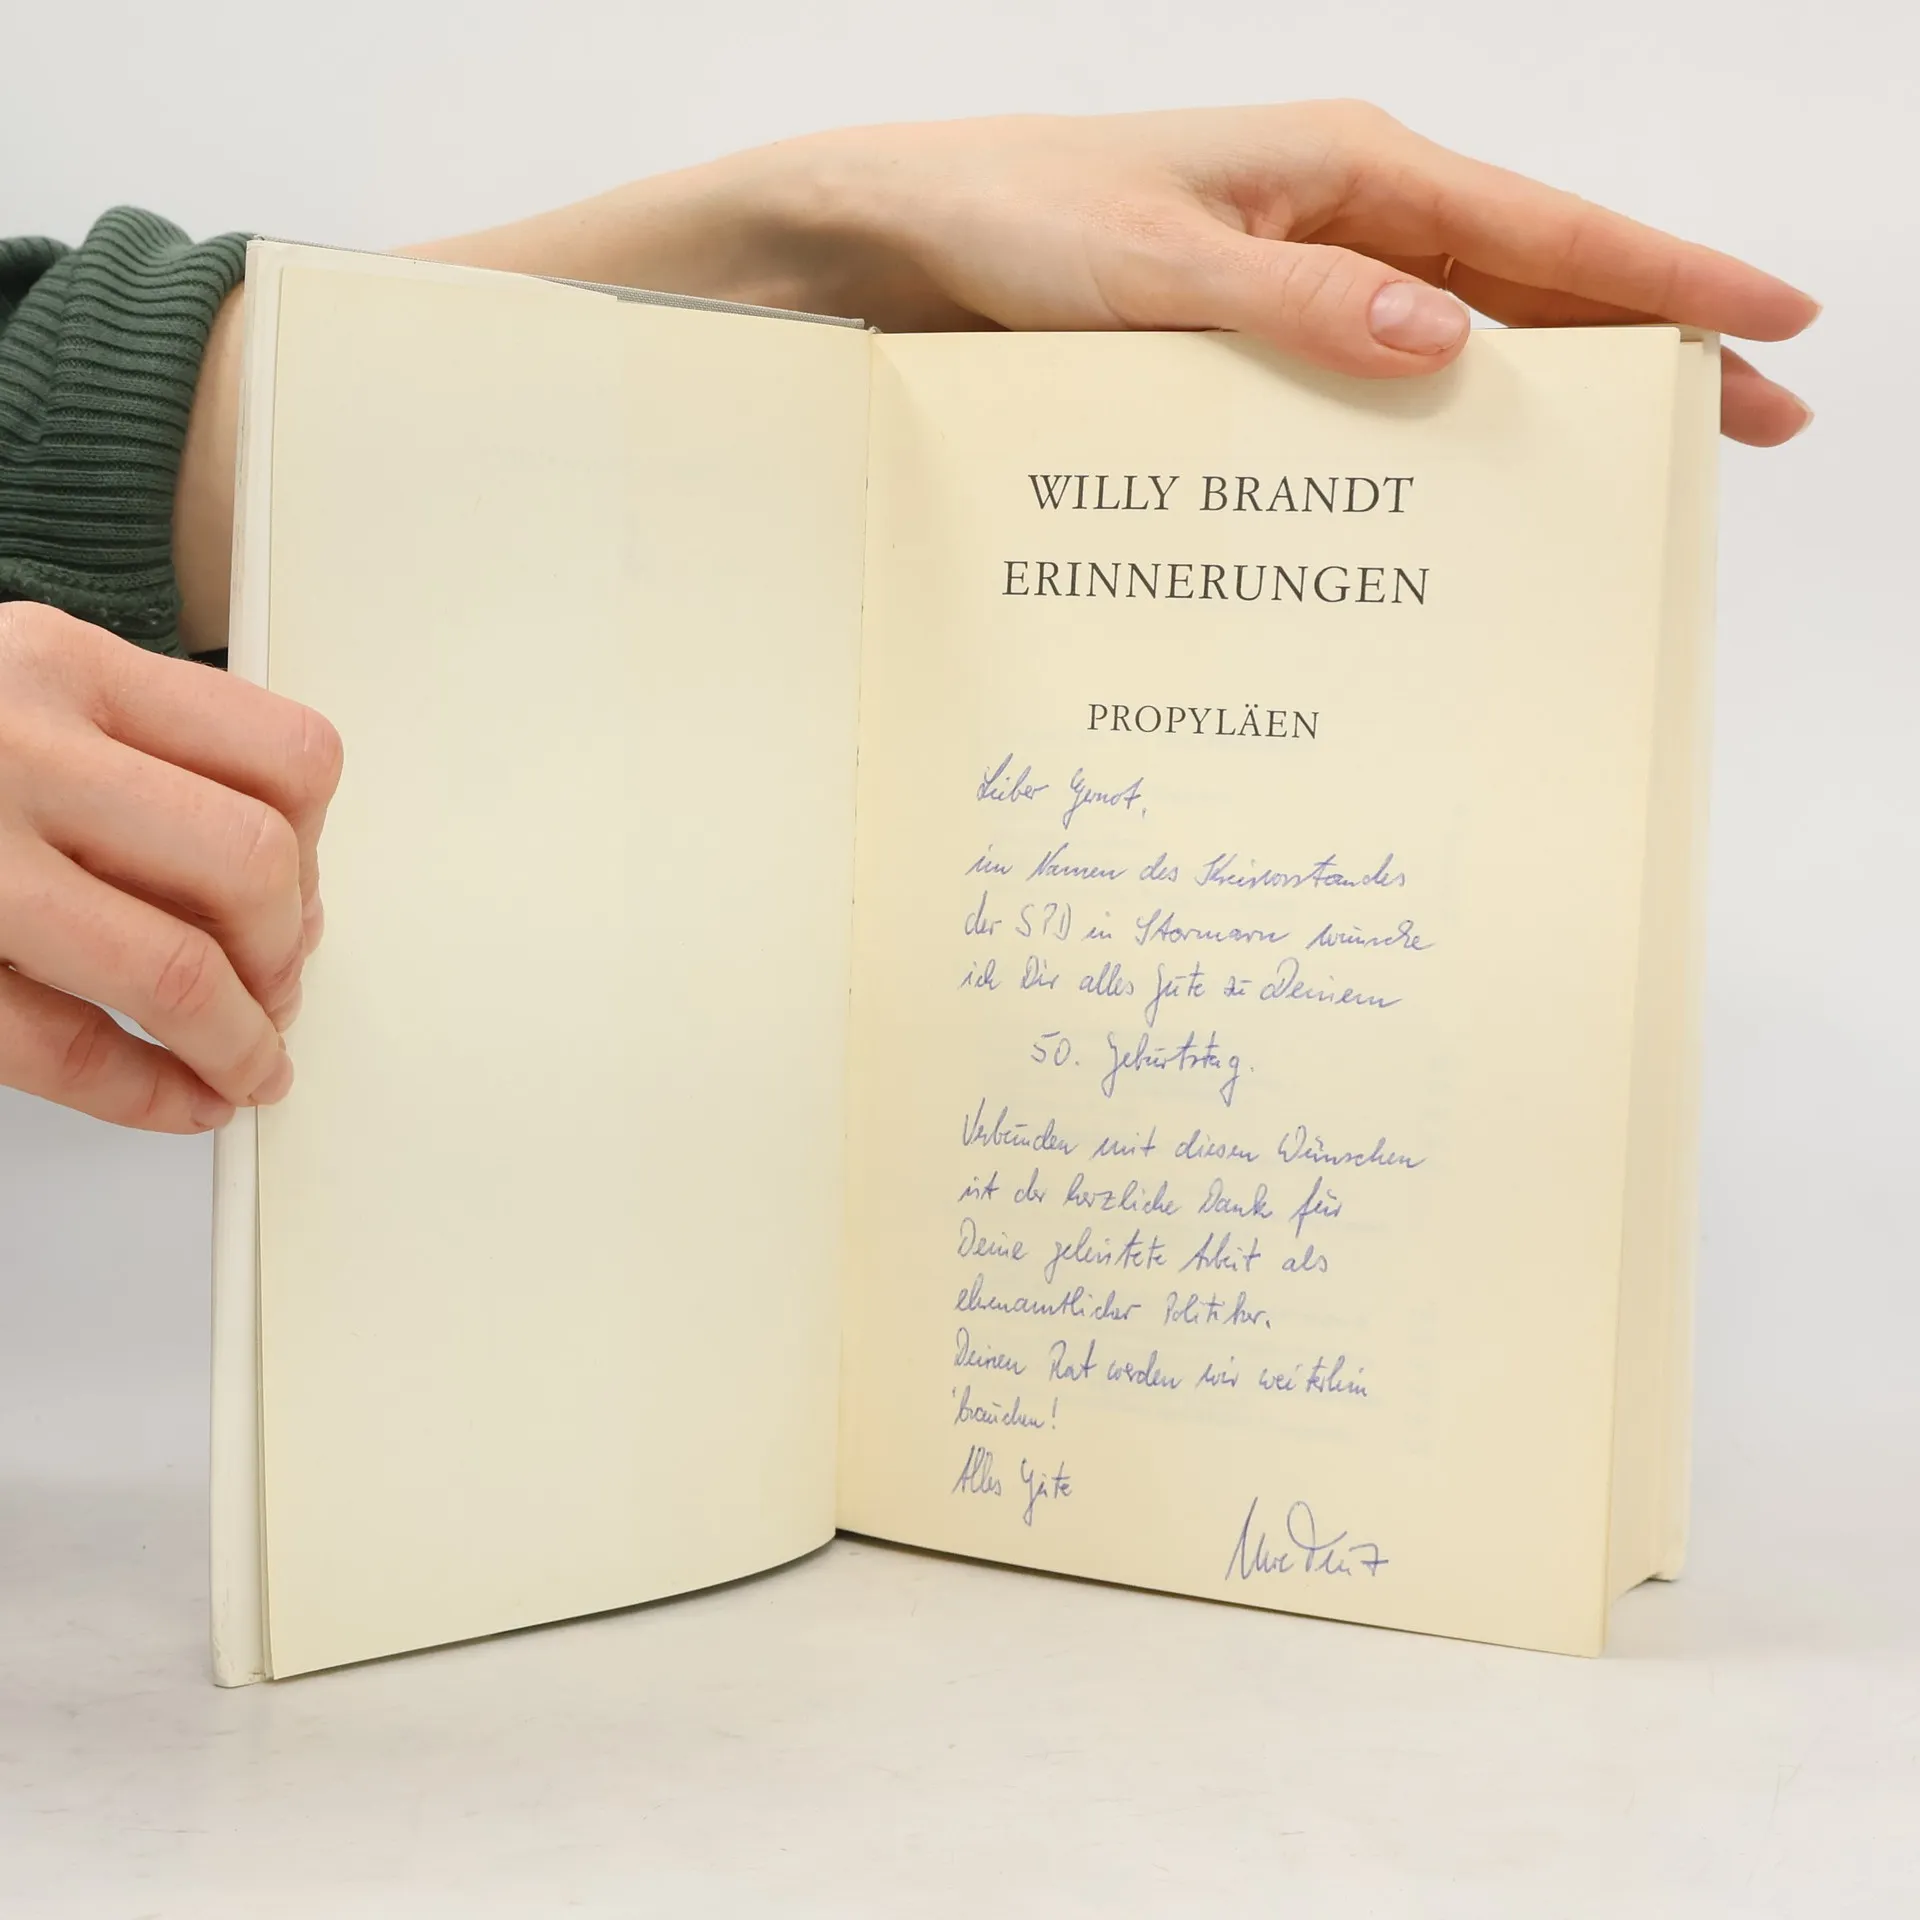 WILLY BRANDT
ERINNERUNGEN
PROPYLÄEN
Lieber Gernot,
im Namen des Kreisvorstandes
der SPD in Stormarn wünsche
ich Dir alles Gute zu Deinem
50. Geburtstag.
Verbunden mit diesen Wünschen
ist der herzliche Dank für
Deine geleistete Arbeit als
ehrenamtlicher Politiker.
Deinen Rat werden wir weiterhin
brauchen!
Alles Gute